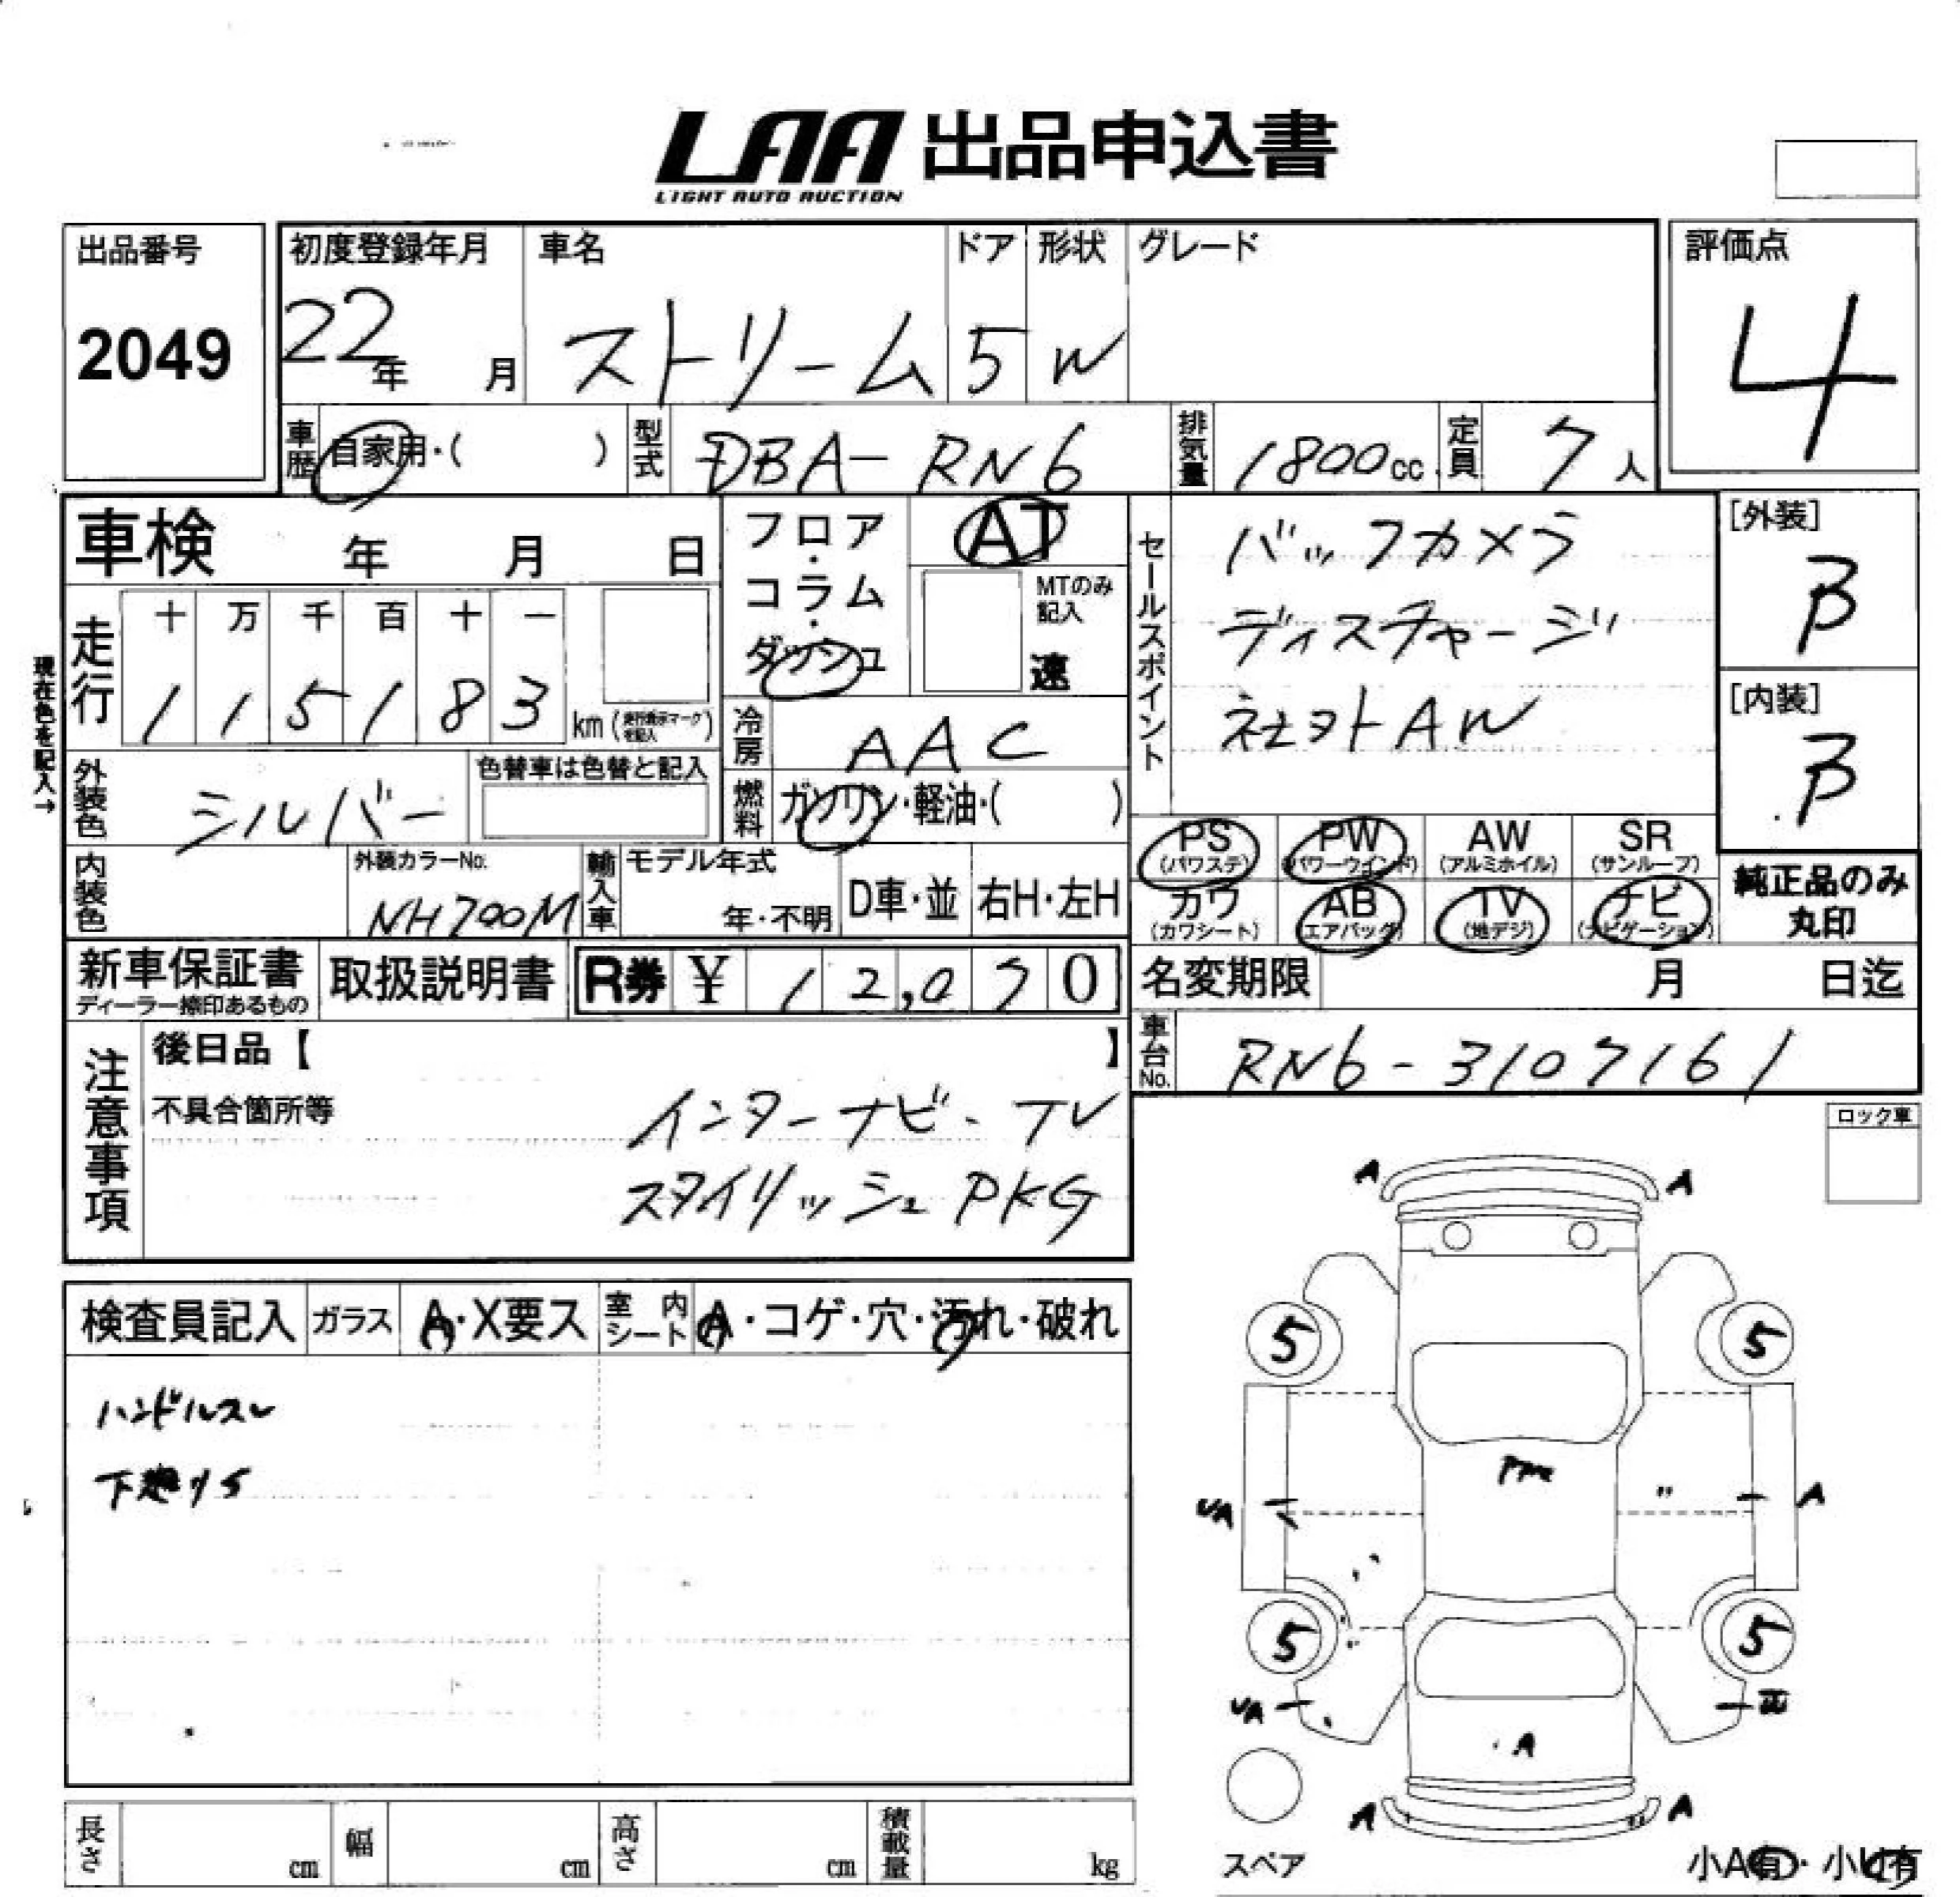 LAA 出品申込書
LIGHT AUTO AUCTION
出品番号
2049
初度登録年月 車名 ドア 形状 グレード
22年 月 ストリーム 5 W
評価点
4
車歴 自家用・( ) 型式 DBA-RN6 排気量 1800cc 定員 7人
車検 年 月 日
フロア・コラム・ダッシュ
AT
MTのみ記入
速
セールスポイント
バックカメラ
ディスチャージ
社ヨトAW
[外装]
B
[内装]
B
現在色を記入→
走行 十 万 千 百 十 一
1 1 5 1 8 3 km (走行表示マークを記入)
冷房 AAC
外装色 シルバー 色替車は色替と記入
燃料 ガソリン・軽油・( )
内装色 外装カラーNo. NH700M 輸入車 モデル年式 年・不明 D車・並 右H・左H
PS (パワステ) PW (パワーウインド) AW (アルミホイル) SR (サンルーフ)
カワ (カワシート) AB (エアバッグ) TV (地デジ) ナビ (ナビゲーション)
純正品のみ丸印
新車保証書 ディーラー捺印あるもの 取扱説明書 R券 ¥ 12,070
名変期限 月 日迄
車台No. RN6-3107161
注意事項
後日品【 】
不具合箇所等
インターナビ-TV
スタイリッシュPKG
ロック車
検査員記入 ガラス A・X要ス 室内シート A・コゲ・穴・汚れ・破れ
ハンドルスレ
A A
5 5
〃
UA A
5 5
UA
A
A A
スペア
小A有・小U有
長さ cm 幅 cm 高さ cm 積載量 kg